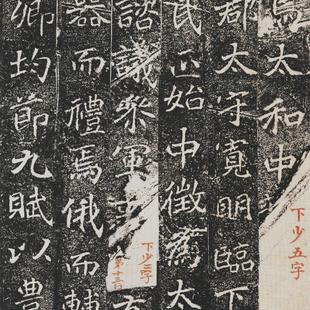 太和中
下少五字
郡太守寬明臨下
正始中徵爲太
下少三字
第十三行
諮議叅軍事
器而禮焉俄而轉
卿均節九賦以豊